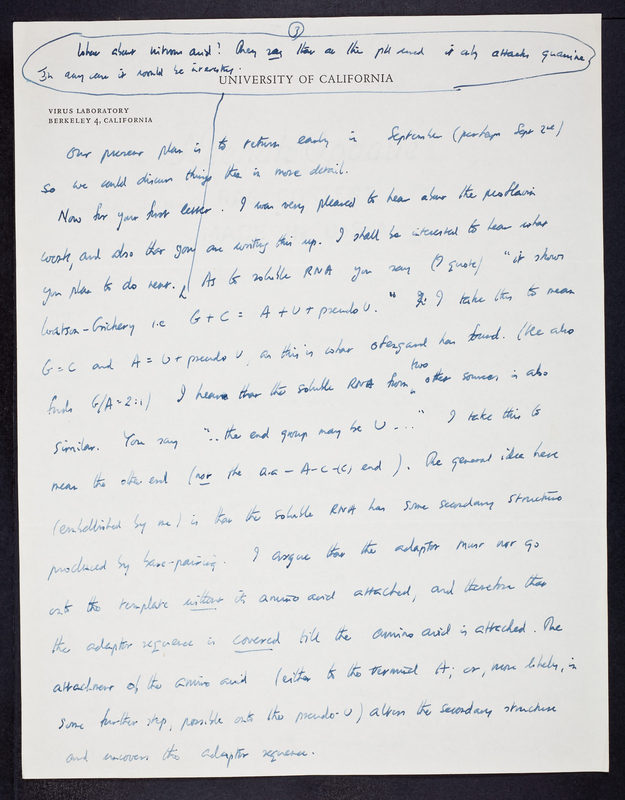 3
What about nitrous acid? They say that at the pH used it only attacks guanine.
In any case it would be interesting.
UNIVERSITY OF CALIFORNIA
VIRUS LABORATORY
BERKELEY 4, CALIFORNIA
Our present plan is to return early in September (perhaps Sept 2nd)
so we could discuss things then in more detail.
Now for your first letter. I was very pleased to hear about the proflavin
work, and also that you are writing this up. I shall be interested to hear what
you plan to do next. As to soluble RNA you say (I quote) "it shows
Watson-Crickery i.e G + C = A + U + pseudo U." I take this to mean
G = C and A = U + pseudo U, as this is what Ofengand has found. (He also
finds G/A = 2:1) I hear that the soluble RNA from two other sources is also
similar. You say "..the end group may be U ..." I take this to
mean the other end (not the a.a - A-C-C, end ). The general idea here
(embellished by me) is that the soluble RNA has some secondary structure
produced by base-pairing. I argue that the adaptor must not go
onto the template without its amino acid attached, and therefore that
the adaptor sequence is covered till the amino acid is attached. The
attachment of the amino acid (either to the terminal A; or, more likely, in
some further step, possible onto the pseudo-U) alters the secondary structure
and uncovers the adaptor sequence.